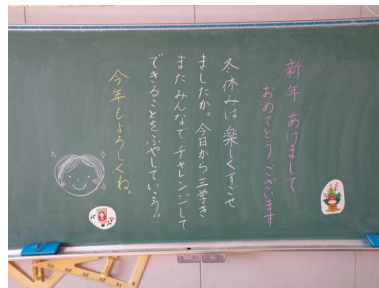 新年 あけまして
おめでとうございます
冬休みは楽しくすごせ
ましたか。今日から三学き
またみんなで チャレンジして
できることをふやしていこう!!
今年もよろしくね。